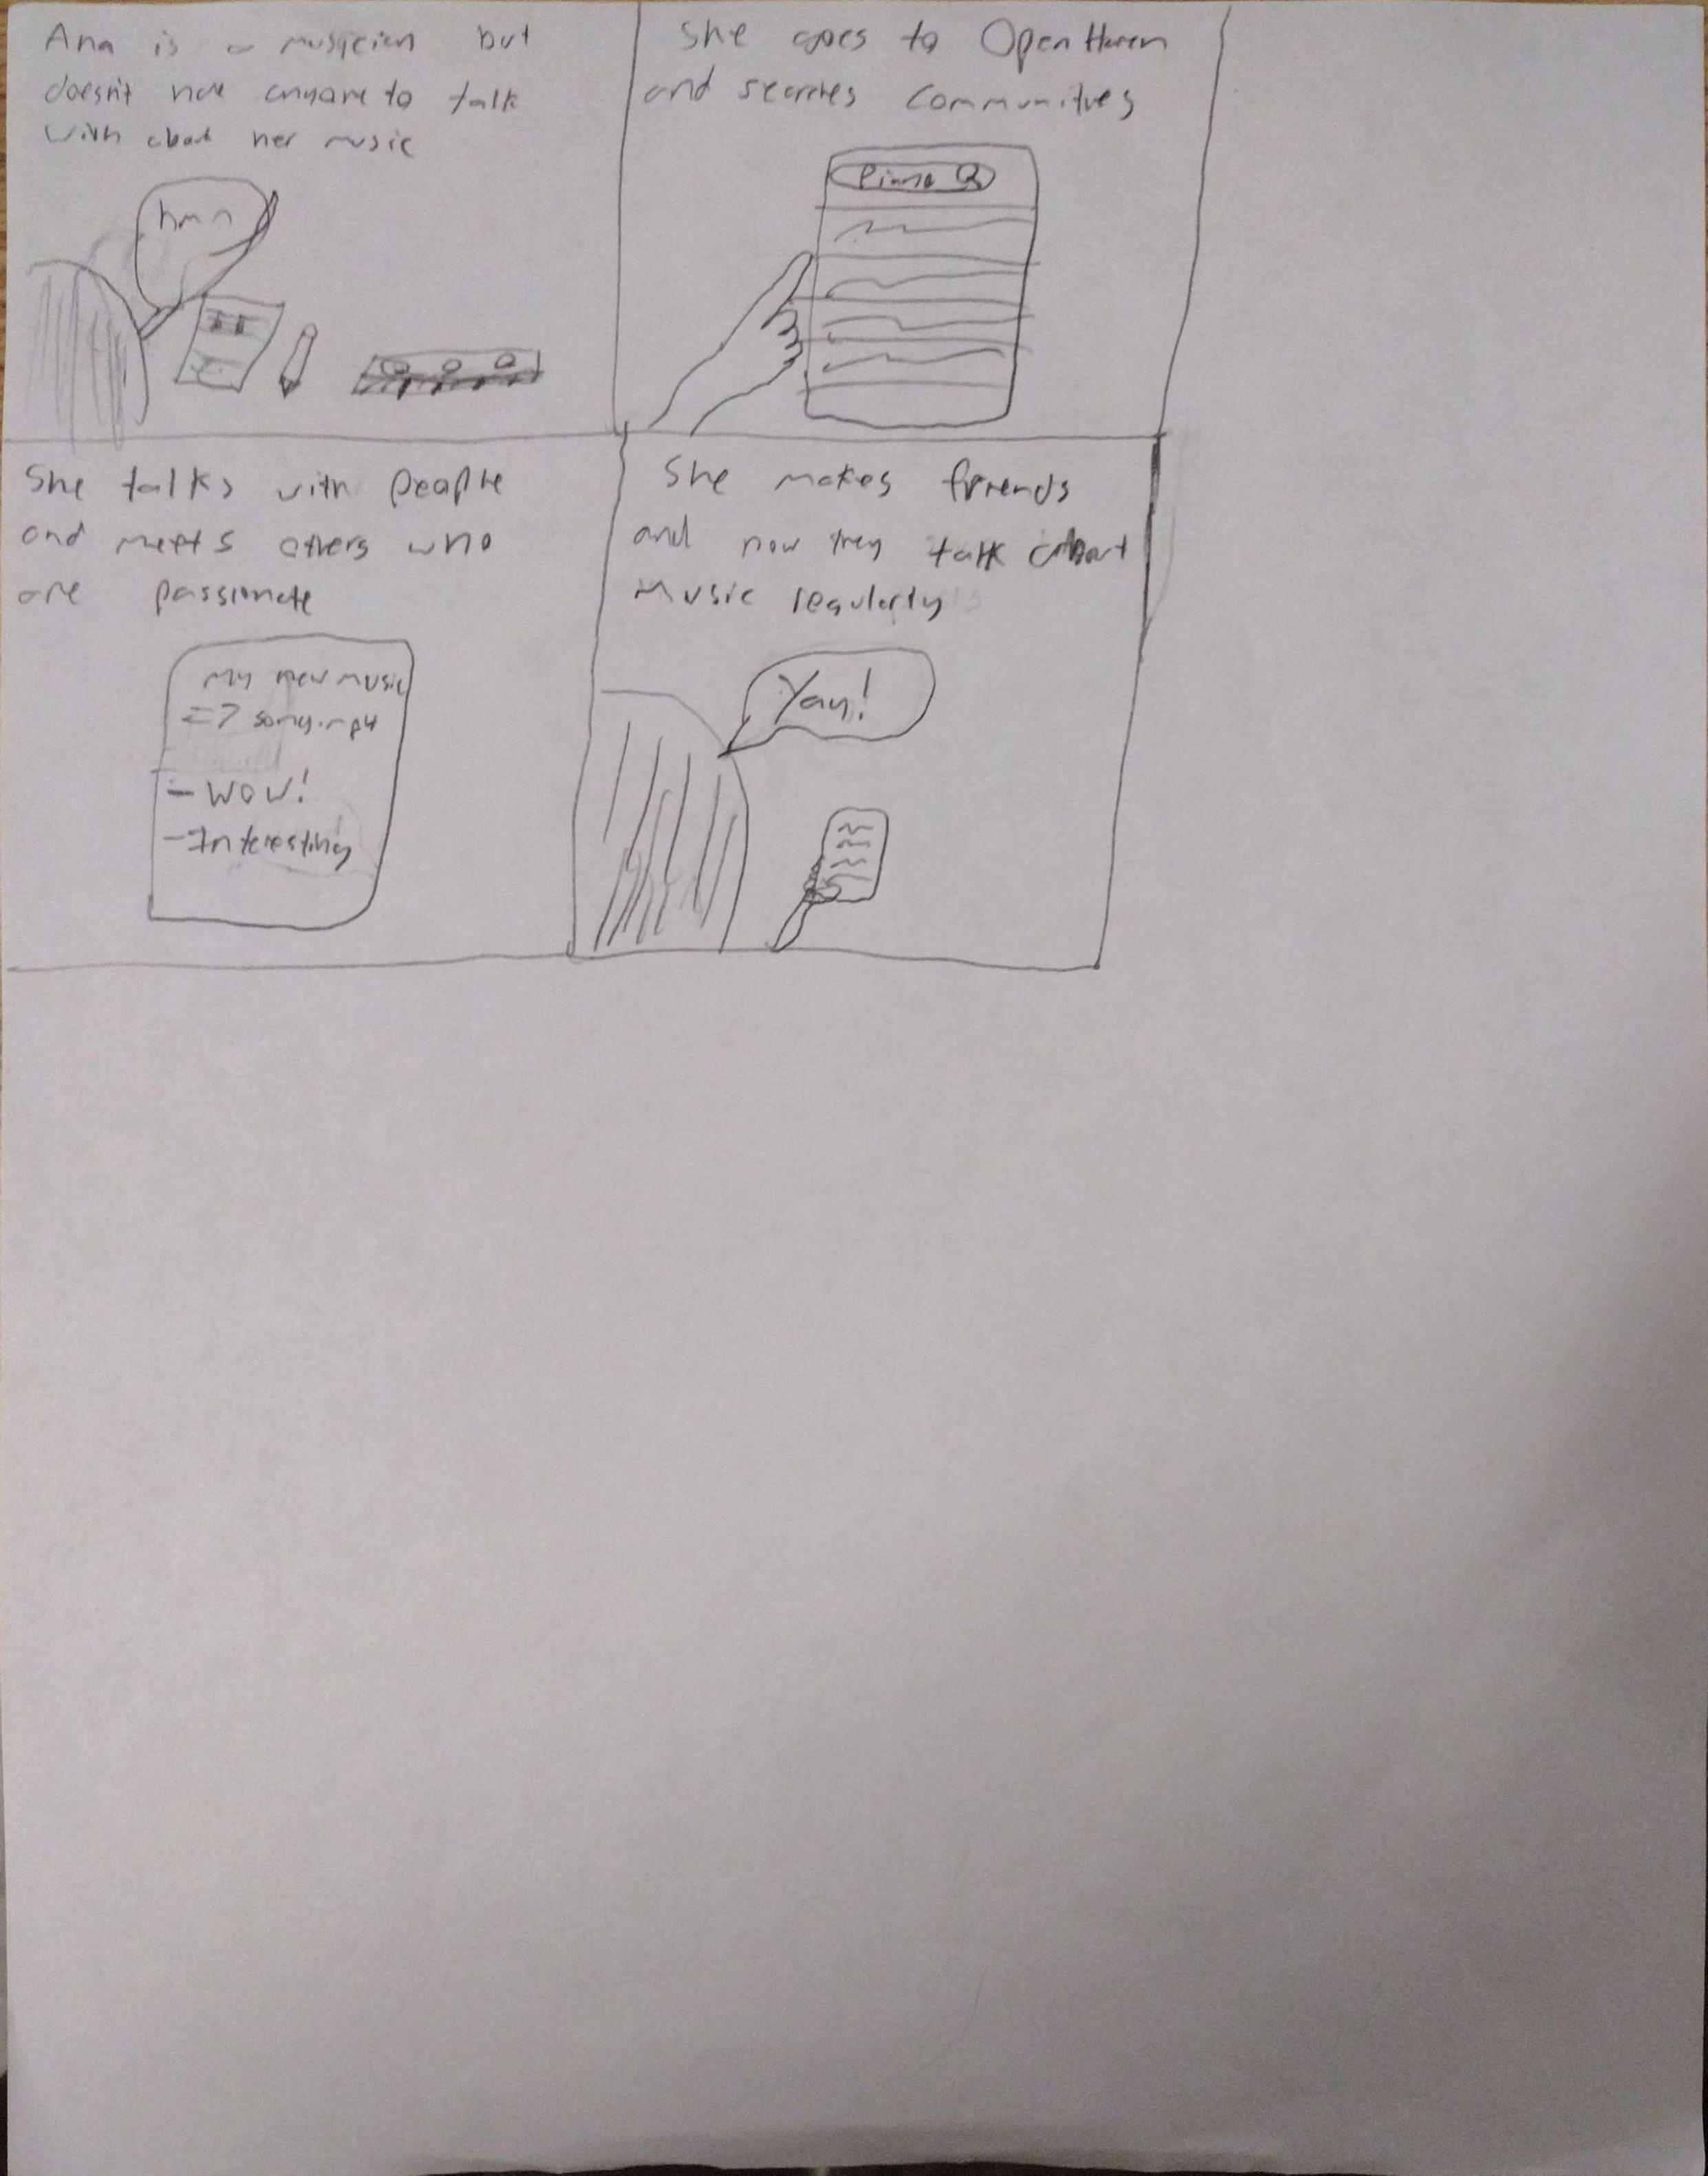 Ana is a musician but
doesn't have anyone to talk
with about her music
hmn
She goes to OpenHaven
and searches communities
Piano
She talks with people
and meets others who
are passionate
My new music
=> song.mp4
- WOW!
- Interesting
She makes friends
and now they talk about
Music regularly
Yay!